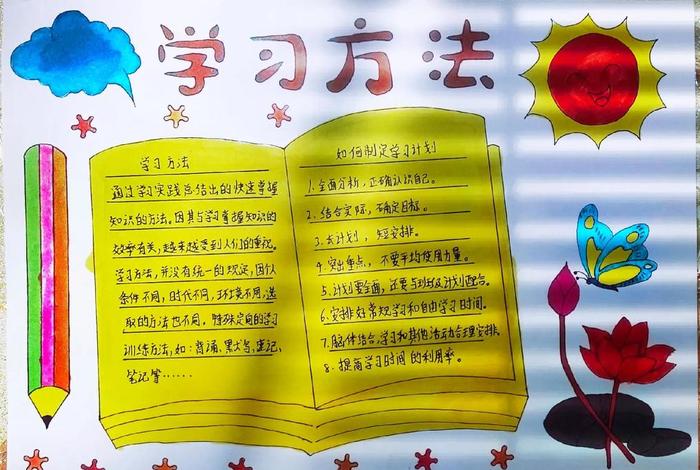 学习方法
学习方法
通过学习实践总结出的快速掌握
知识的方法。因其与学习掌握知识的
效率有关,越来越受到人们的重视。
学习方法,并没有统一的规定,因个人
条件不同,时代不同,环境不同,选
取的方法也不同。特殊定向的学习
训练方法,如:背诵、默写、速记、
笔记等……
如何制定学习计划
1.全面分析,正确认识自己。
2.结合实际,确定目标。
3.长计划,短安排。
4.突出重点,不要平均使用力量。
5.计划要全面,还要与班级计划配合。
6.安排好常规学习和自由学习时间。
7.脑体结合,学习和其他活动合理安排。
8.提高学习时间的利用率。